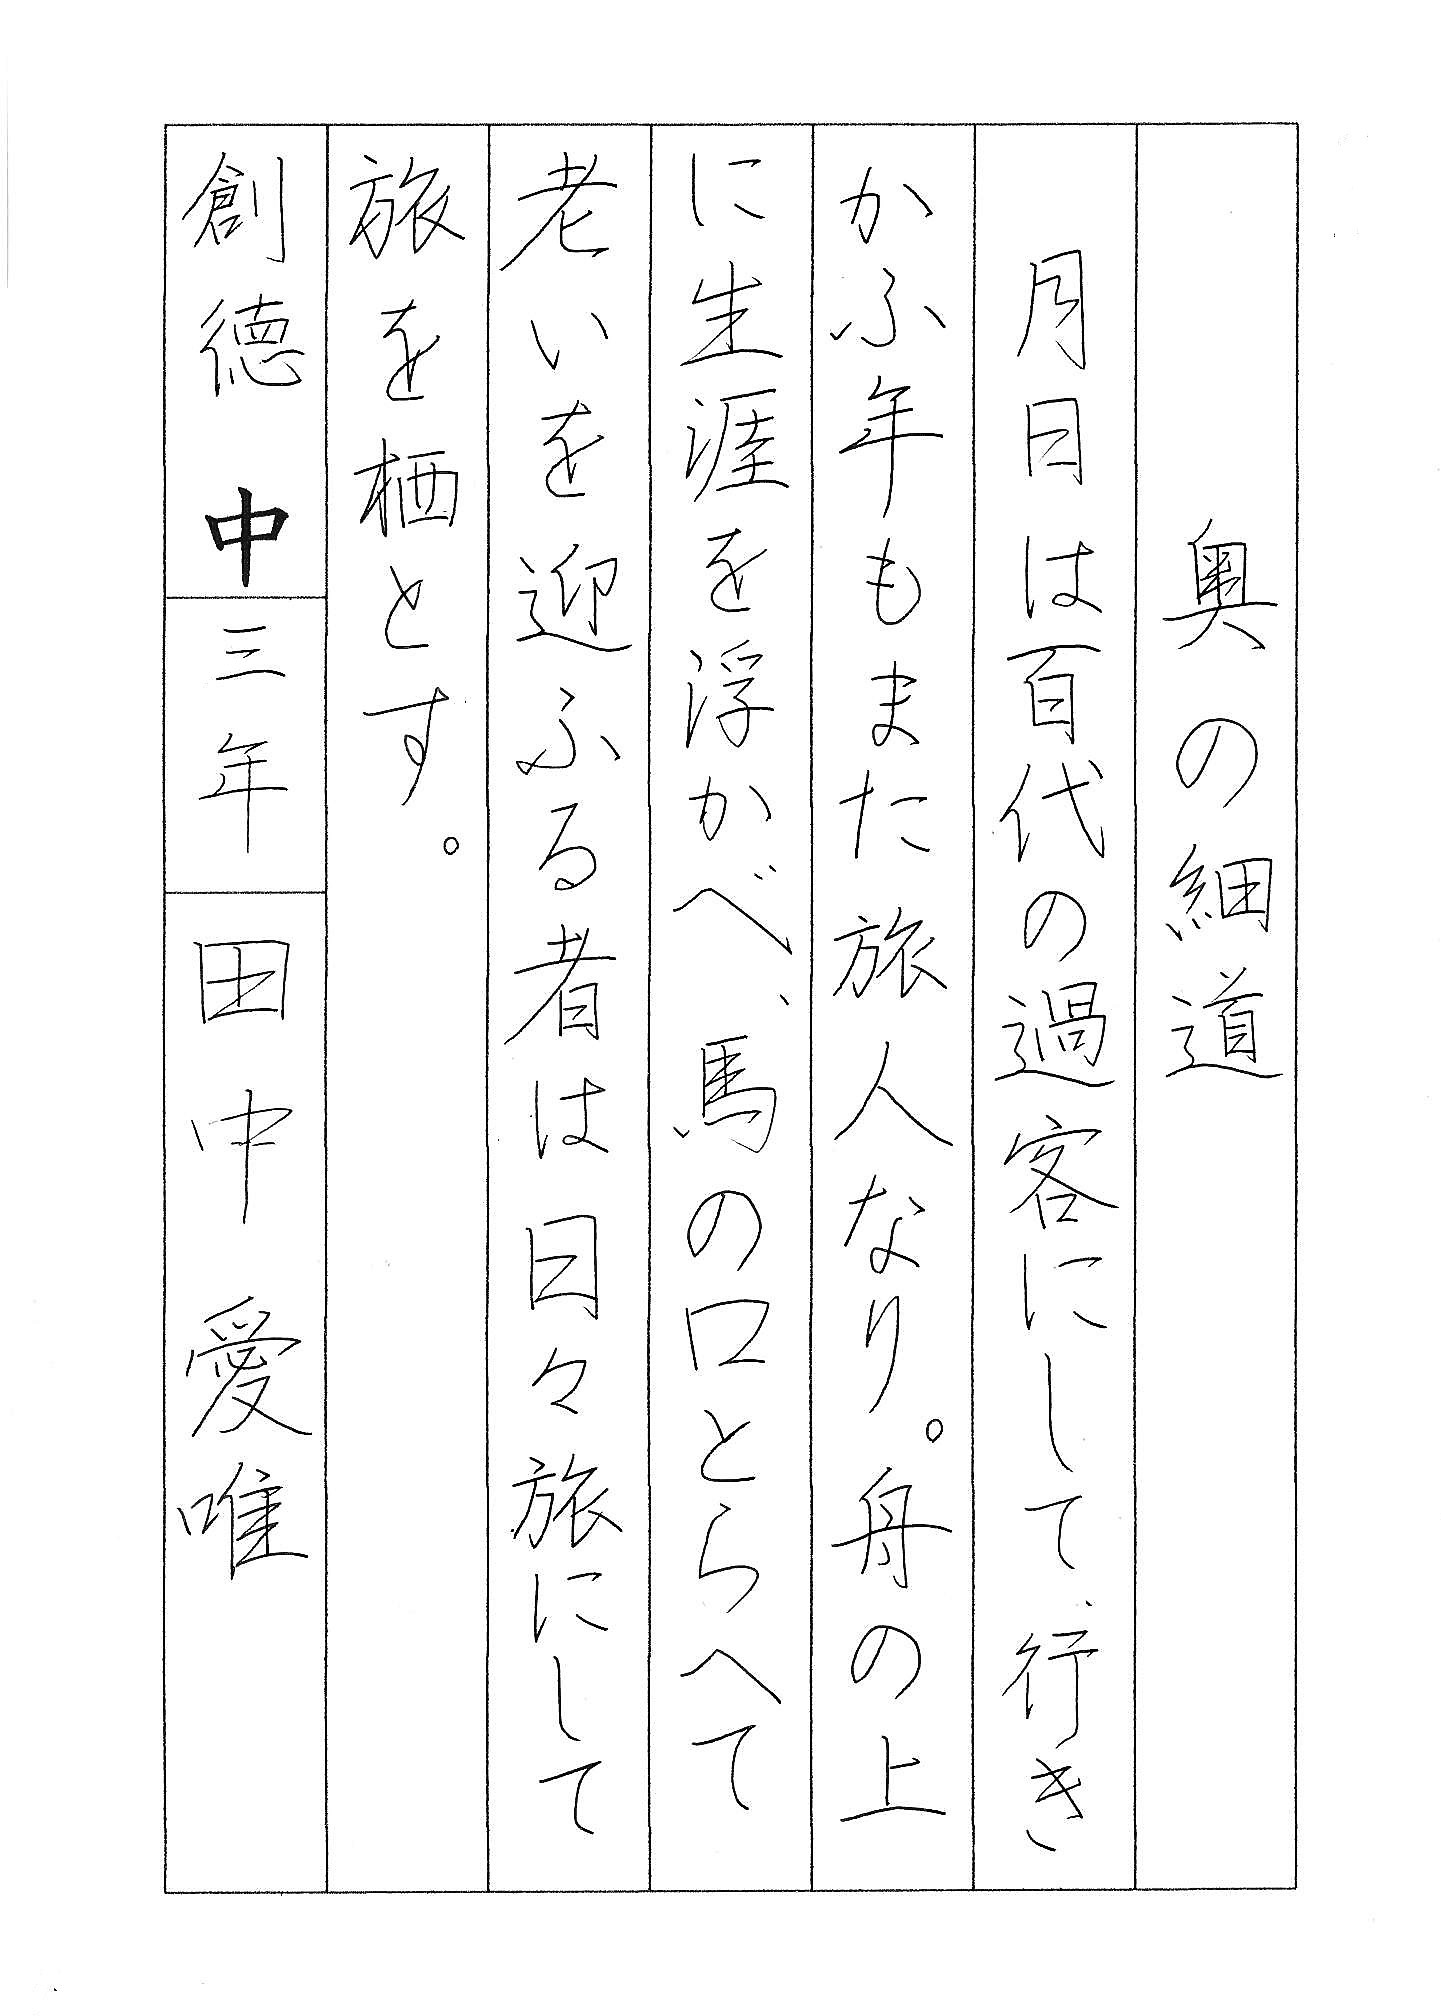 奥の細道
月日は百代の過客にして、行き
かふ年もまた旅人なり。舟の上
に生涯を浮かべ、馬の口とらへて
老いを迎ふる者は日々旅にして
旅を栖とす。
創徳中 三年 田中愛唯